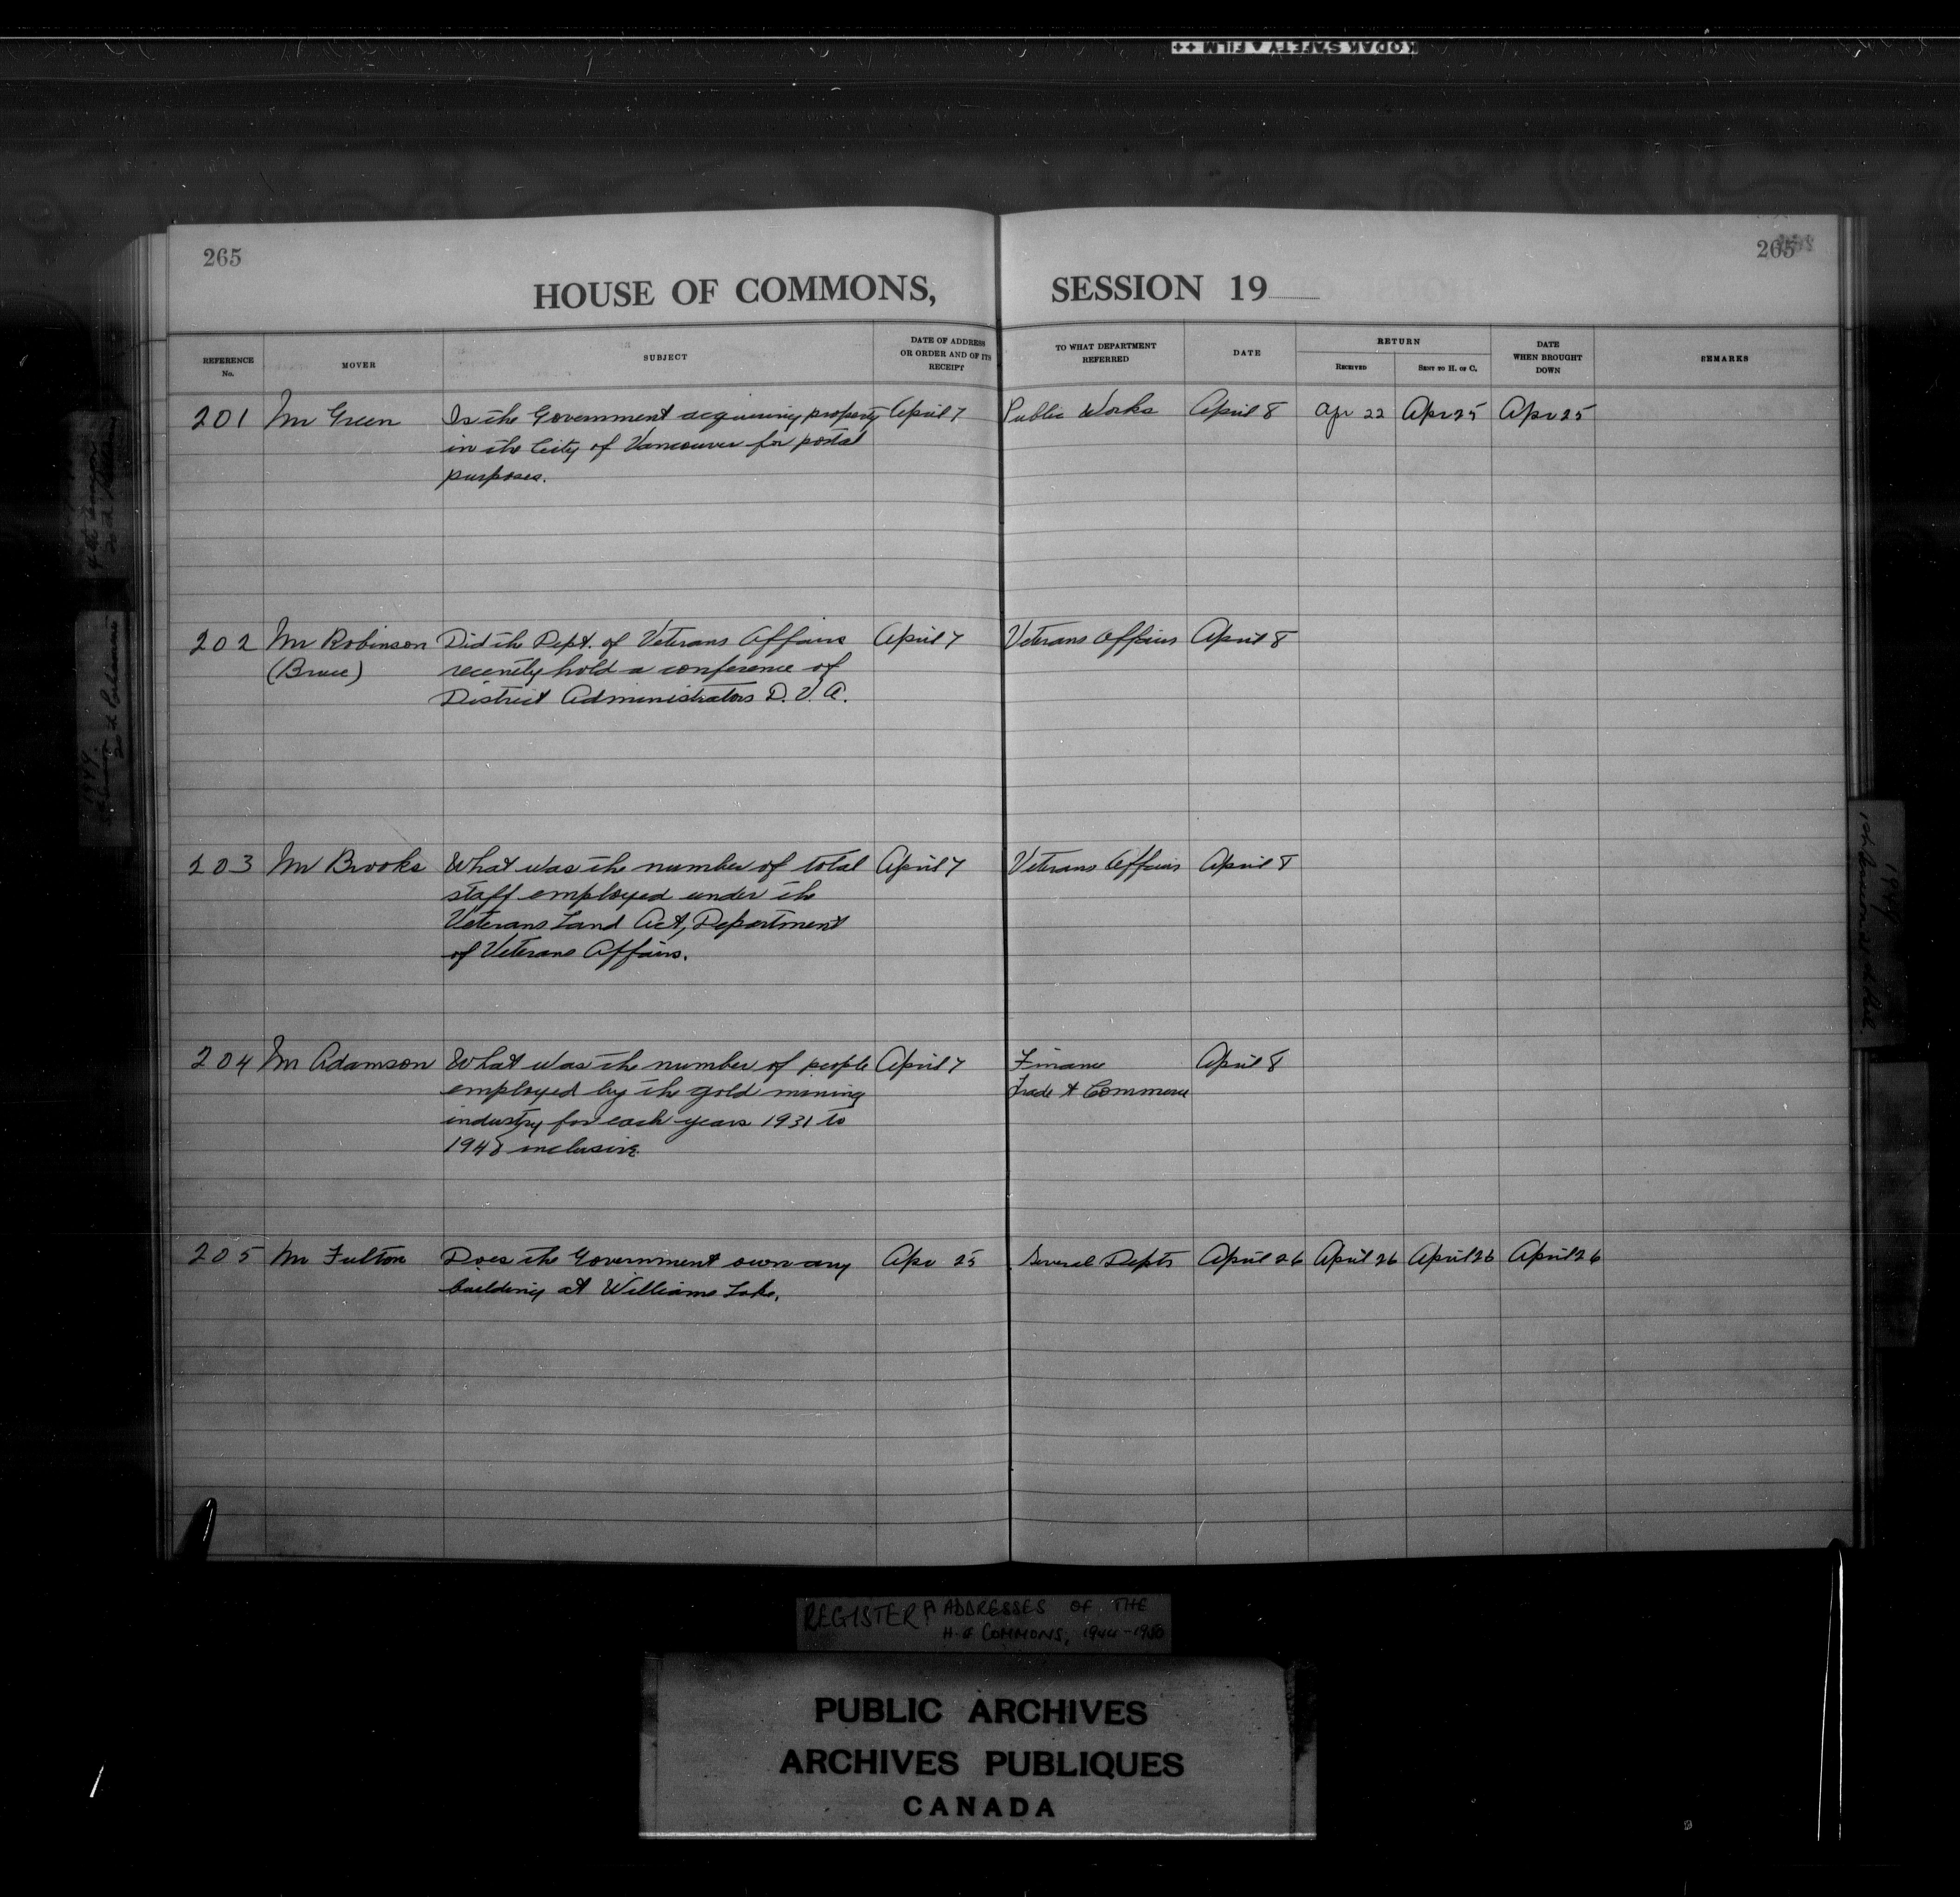 KODAK SAFETY A FILM ++
265
265
HOUSE OF COMMONS, SESSION 19
REFERENCE No.
MOVER
SUBJECT
DATE OF ADDRESS OR ORDER AND OF ITS RECEIPT
TO WHAT DEPARTMENT REFERRED
DATE
RETURN
RECEIVED
SENT TO H. OF C.
DATE WHEN BROUGHT DOWN
REMARKS
201 Mr Green Is the Government acquiring property April 7 Public Works April 8 Apr 22 Apr 25 Apr 25
in the City of Vancouver for postal
purposes.
202 Mr Robinson Did the Dept. of Veterans Affairs April 7 Veterans Affairs April 8
(Bruce) recently hold a conference of
District Administrators D.V.A.
203 Mr Brooks What was the number of total April 7 Veterans Affairs April 8
staff employed under the
Veterans Land Act, Department
of Veterans Affairs.
204 Mr Adamson What was the number of people April 7 Finance April 8
employed by the gold mining Trade & Commerce
industry for each years 1931 to
1948 inclusive
205 Mr Fulton Does the Government own any Apr 25 Several Depts April 26 April 26 April 26 April 26
building at Williams Lake.
REGISTER OF ADDRESSES OF THE
H. of COMMONS, 1944-1950
PUBLIC ARCHIVES
ARCHIVES PUBLIQUES
CANADA